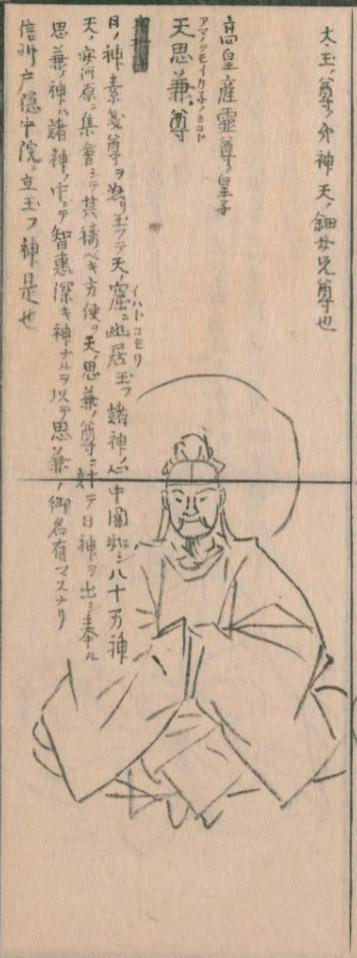 太玉ノ尊ノ分神天ノ鈿女兄尊也
高皇産霊尊ノ皇子
アマノヲモイカネノミコト
天思兼ノ尊
日ノ神素戔尊ヲ怒リ玉フテ天ノ窟ニ幽居玉フ諸神ノ心中闇如シ八十万神
イハトコモリ
天ノ安河原ニ集會シテ其祷ベキ方便ヲ天ノ思兼ノ尊ニ計テ日神ヲ出シ奉ル
思兼ノ神ハ諸神ノ中ニテ智惠深キ神ナルヲ以テ思兼ノ御名有マスナリ
信州戸隠中院ニ立玉フ神是也